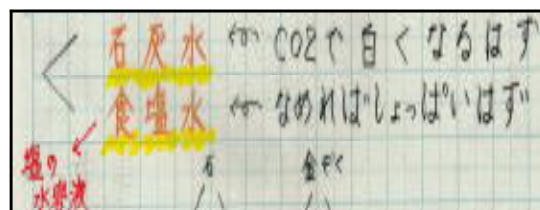 石灰水 ← CO2で白くなるはず
食塩水 ← なめればしょっぱいはず
塩の
水溶液
石